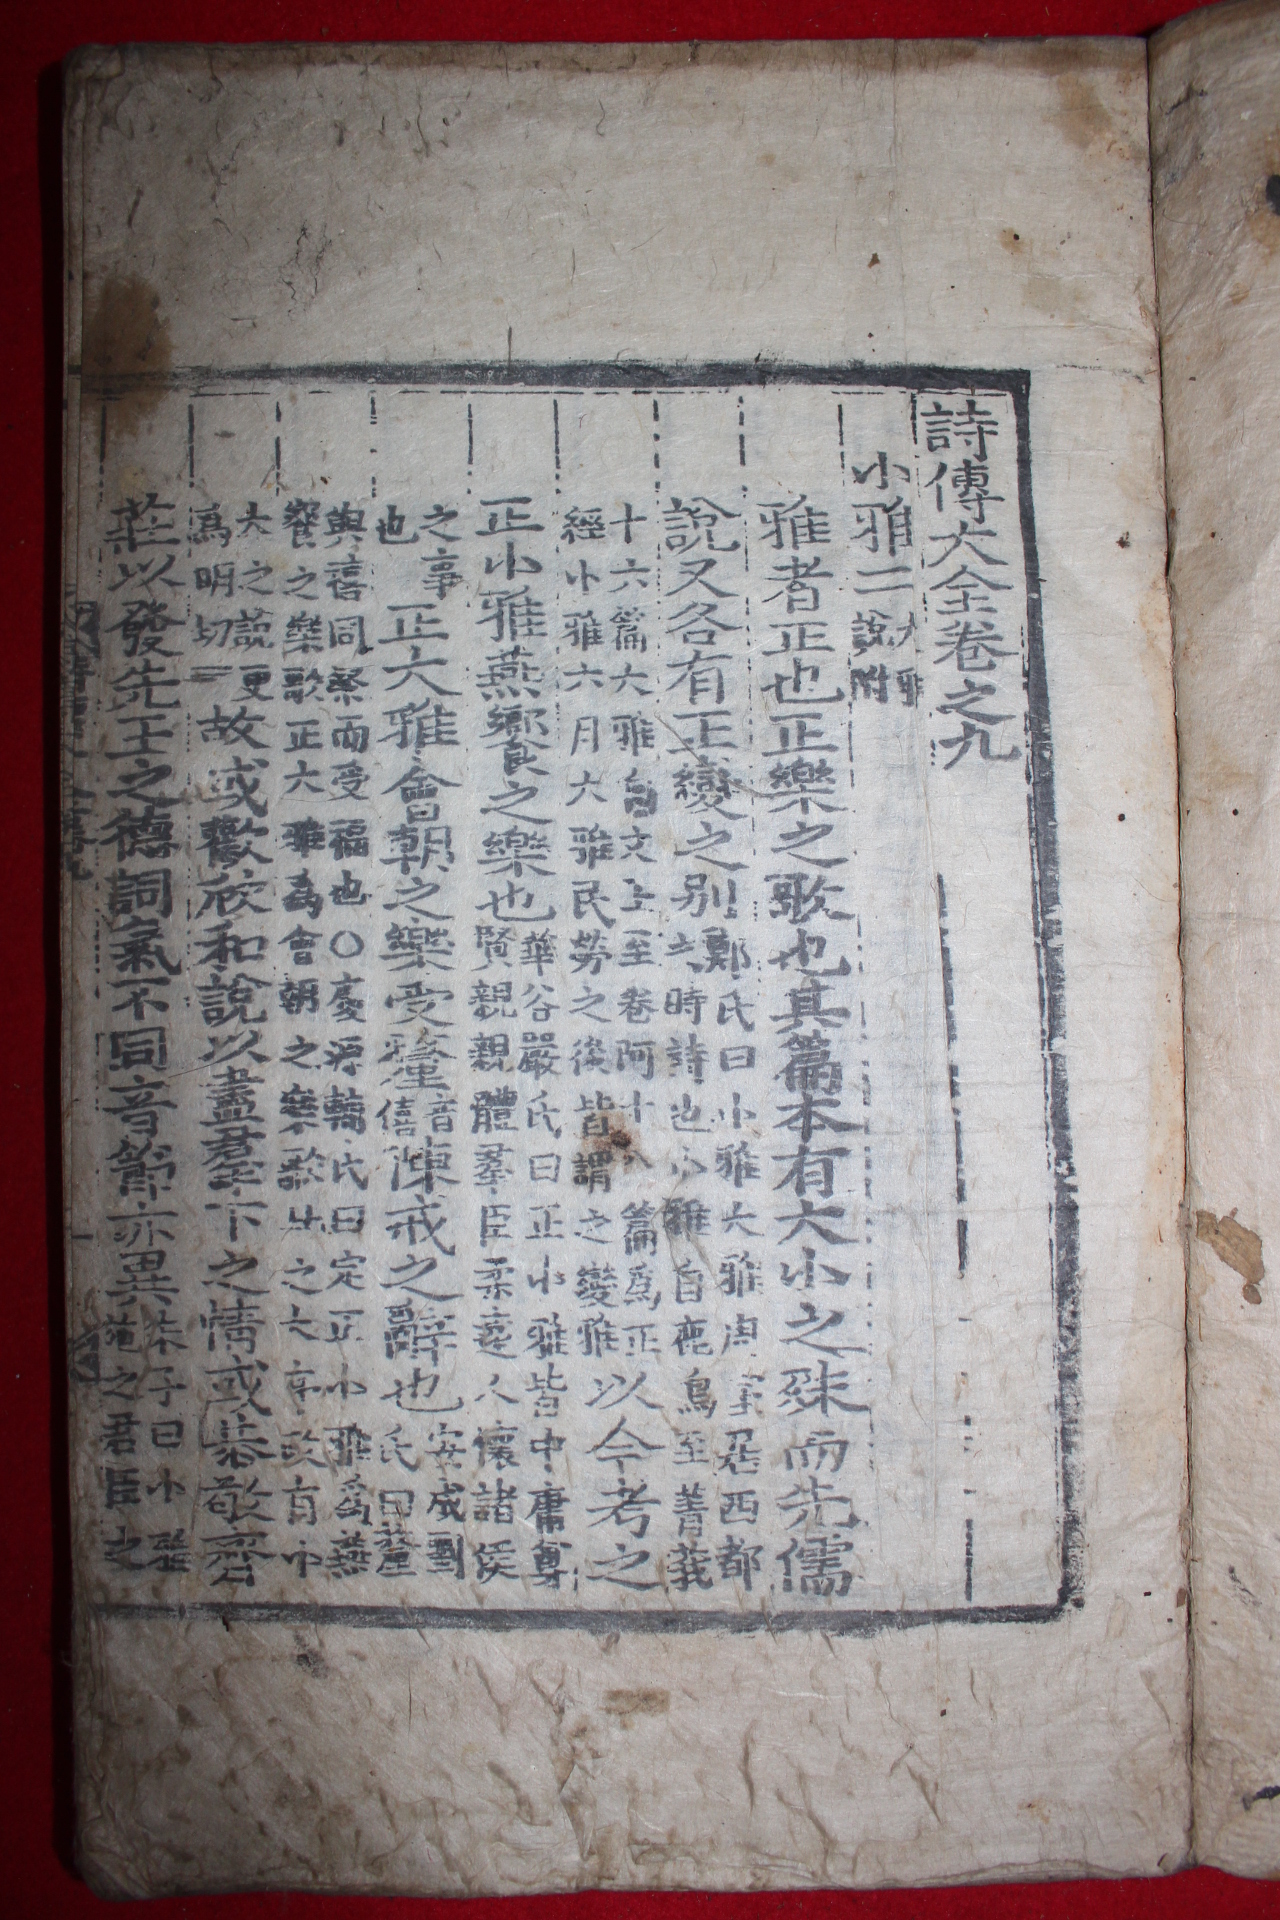 詩傳大全卷之九
小雅二
大雅
說附
雅者正也正樂之歌也其篇本有大小之殊而先儒
說又各有正變之別
鄭氏曰小雅大雅周室居西都
之時詩也小雅自鹿鳴至菁莪
十六篇大雅自文王至卷阿十八篇爲正
經小雅六月大雅民勞之後皆謂之變雅
以今考之
正小雅燕饗之樂也
華谷嚴氏曰正小雅皆中庸尊
賢親親體羣臣柔遠人懷諸侯
之事
也
正大雅會朝之樂受釐
音
僖
陳戒之辭也
安成劉
氏曰釐
與禧同祭而受福也○慶源輔氏曰定正小雅爲燕
饗之樂歌正大雅爲會朝之樂歌比之大序政有小
大之說更
爲明切
故或歡欣和說以盡羣下之情或恭敬齊
莊以發先王之德詞氣不同音節亦異
朱子曰小雅
施之君臣之